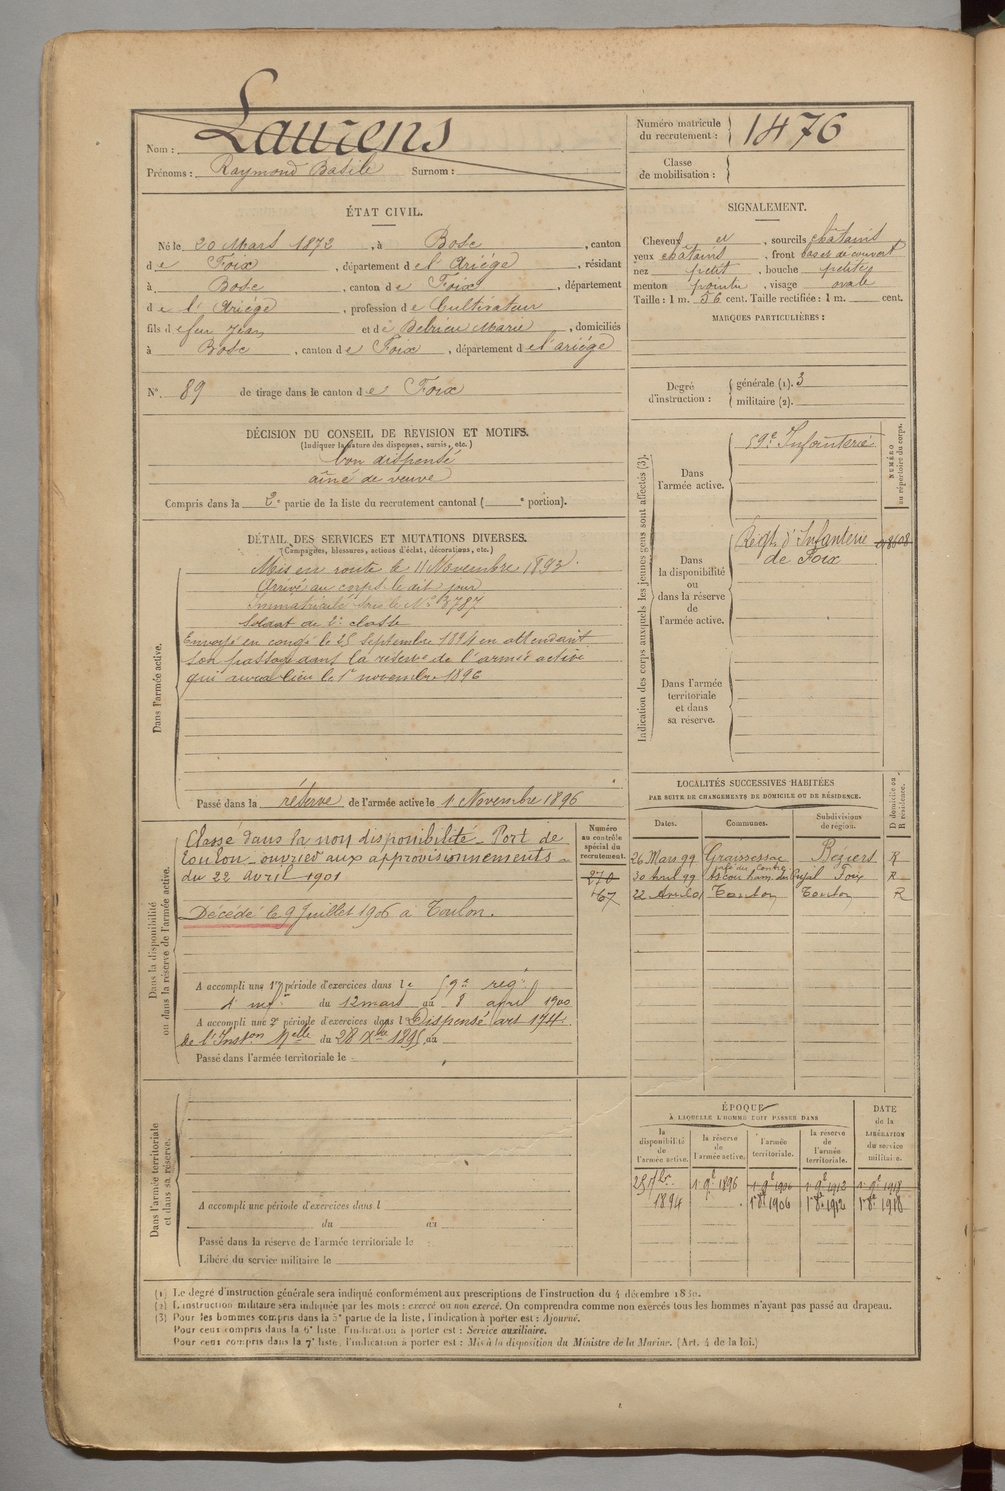 Nom : Laurens
Prénoms : Raymond Basile Surnom :
Numéro matricule du recrutement : 1476
Classe de mobilisation :
ÉTAT CIVIL.
Né le 20 Mars 1872, à Bosc, canton
de Foix, département de l'Ariége, résidant
à Bosc, canton de Foix, département
de l'Ariége, profession de Cultivateur
fils de feu Jean et de Delrieu Marie, domiciliés
à Bosc, canton de Foix, département de l'ariége
N° 89 de tirage dans le canton de Foix
DÉCISION DU CONSEIL DE REVISION ET MOTIFS.
(Indiquer la nature des dispenses, sursis, etc.)
bon dispensé
aîné de veuve
Compris dans la 2e partie de la liste du recrutement cantonal ( e portion).
DÉTAIL DES SERVICES ET MUTATIONS DIVERSES.
(Campagnes, blessures, actions d'éclat, décorations, etc.)
Dans l'armée active.
Mis en route le 11 Novembre 1893.
Arrivé au corps le dit jour
Immatriculé sous le N° 3787
Soldat de 2e classe
Envoyé en congé le 25 septembre 1894 en attendant
son passage dans la réserve de l'armée active
qui aura lieu le 1er novembre 1896
Passé dans la réserve de l'armée active le 1 Novembre 1896
SIGNALEMENT.
Cheveux et, sourcils châtains
yeux châtains, front bas et découvert
nez petit, bouche petite
menton pointu, visage ovale
Taille : 1 m. 56 cent. Taille rectifiée : 1 m. cent.
MARQUES PARTICULIÈRES :
Degré d'instruction :
générale (1). 3
militaire (2).
Indication des corps auxquels les jeunes gens sont affectés (3).
NUMÉRO au répertoire du corps.
Dans l'armée active.
59e Infanterie
Dans la disponibilité ou dans la réserve de l'armée active.
Régt. d'Infanterie
de Foix
Dans l'armée territoriale et dans sa réserve.
Dans la disponibilité ou dans la réserve de l'armée active.
Numéro au contrôle spécial du recrutement.
270
467
Classé dans la non disponibilité - Port de
Toulon - ouvrier aux approvisionnements -
du 22 avril 1901
Décédé le 9 Juillet 1906 à Toulon.
A accompli une 1re période d'exercices dans le 59e rég.
d'inf. du 12 mars au 8 avril 1900
A accompli une 2e période d'exercices dans l Dispensé art 174
de l'Inston Melle du 28 Xbre 1895 au
Passé dans l'armée territoriale le
LOCALITÉS SUCCESSIVES HABITÉES
PAR SUITE DE CHANGEMENTS DE DOMICILE OU DE RÉSIDENCE.
Dates. Communes. Subdivisions de région. D domicile ou R résidence.
26 Mars 99 Graissessac Béziers R
30 Avril 99 Ascou Foix R
22 Avril 01 Toulon Toulon R
Dans l'armée territoriale et dans sa réserve.
A accompli une période d'exercices dans l
du au
Passé dans la réserve de l'armée territoriale le
Libéré du service militaire le
ÉPOQUE
À LAQUELLE L'HOMME DOIT PASSER DANS
la disponibilité de l'armée active. la réserve de l'armée active. l'armée territoriale. la réserve de l'armée territoriale. DATE de la LIBÉRATION du service militaire.
25 7bre 1894 1 9e 1896 1 9e 1906 1 9e 1912 1 9e 1918
1er 8e 1906 1er 8e 1912 1er 8e 1918
(1) Le degré d'instruction générale sera indiqué conformément aux prescriptions de l'instruction du 4 décembre 1889.
(2) L'instruction militaire sera indiquée par les mots : exercé ou non exercé. On comprendra comme non exercés tous les hommes n'ayant pas passé au drapeau.
(3) Pour les hommes compris dans la 5e partie de la liste, l'indication à porter est : Ajourné.
Pour ceux compris dans la 6e liste, l'indication à porter est : Service auxiliaire.
Pour ceux compris dans la 7e liste, l'indication à porter est : Mis à la disposition du Ministre de la Marine. (Art. 4 de la loi.)